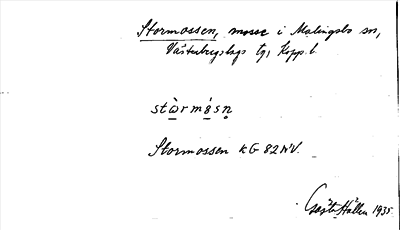 Stormossen, mosse i Malingsbo sn,
Västerbergslags tg, Kopp. l.
stὼrmɷ́sn̥
Stormossen KG 82 NV.
Gösta Hallén 1935